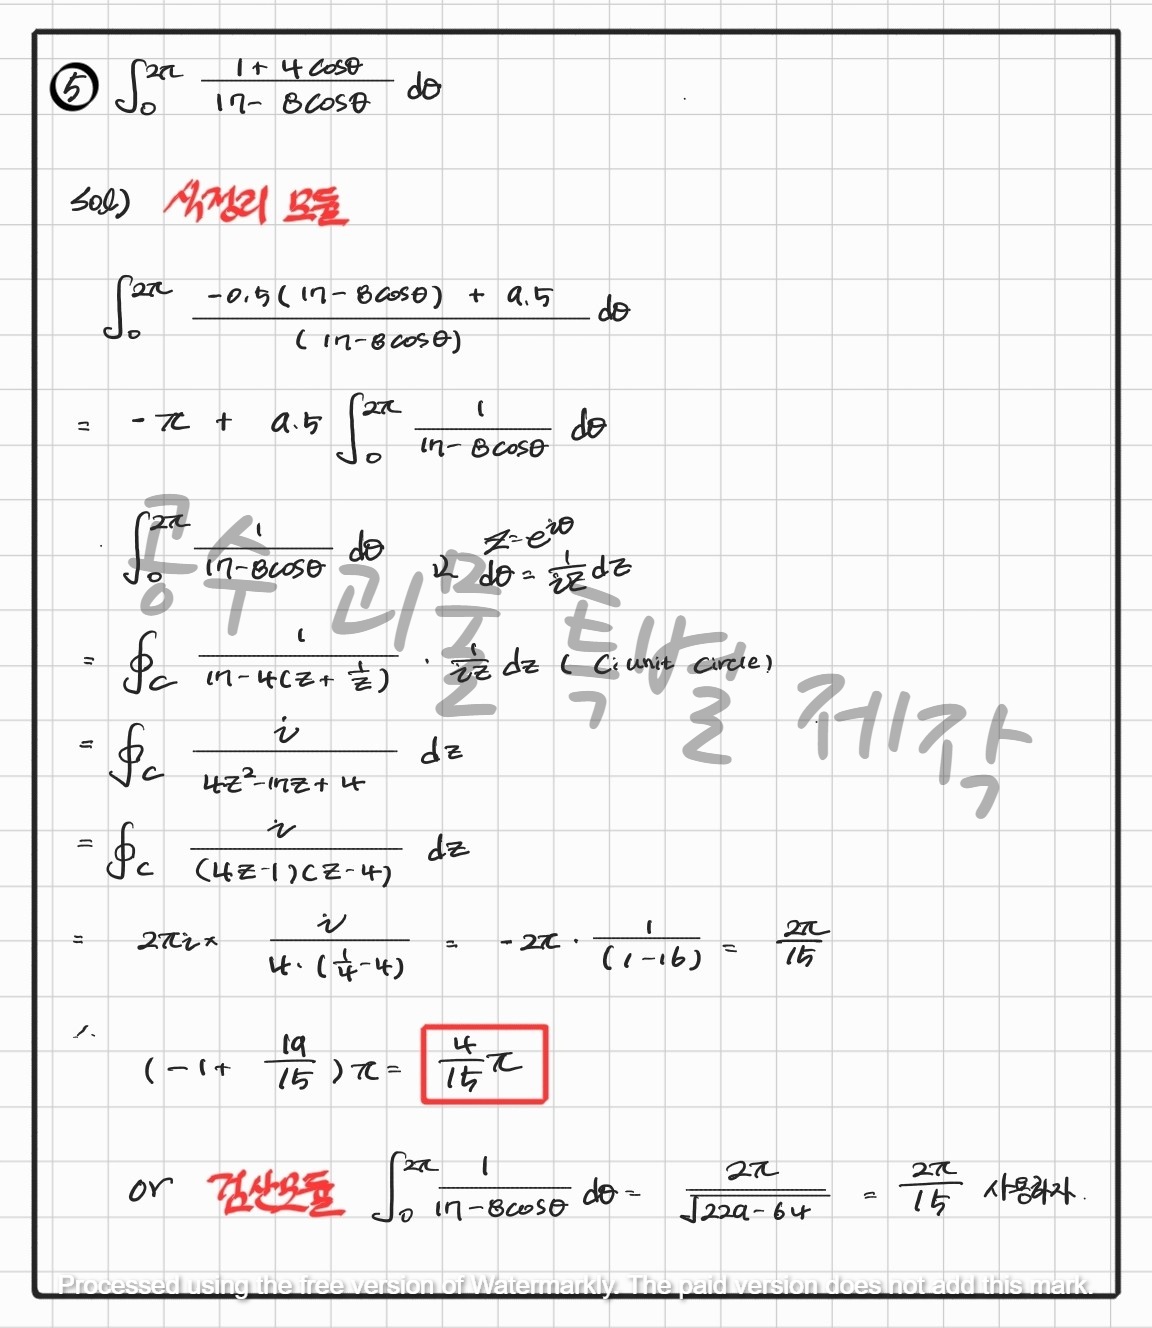 ⑤ ∫₀^2π (1 + 4cosθ)/(17 - 8cosθ) dθ
sol) 식정리 모듈
∫₀^2π (-0.5(17 - 8cosθ) + 9.5)/(17 - 8cosθ) dθ
= -π + 9.5 ∫₀^2π 1/(17 - 8cosθ) dθ
∫₀^2π 1/(17 - 8cosθ) dθ z = e^iθ
dθ = 1/(iz) dz
= ∮_C 1/(17 - 4(z + 1/z)) · 1/(iz) dz (C: unit circle)
= ∮_C i/(4z² - 17z + 4) dz
= ∮_C i/((4z - 1)(z - 4)) dz
= 2πi × i/(4·(1/4 - 4)) = -2π · 1/(1 - 16) = 2π/15
∴
(-1 + 19/15)π = 4/15 π
or 검산모듈 ∫₀^2π 1/(17 - 8cosθ) dθ = 2π/√(229 - 64) = 2π/15 사용하자.
공수 괴물 특벌 제작
Processed using the free version of Watermarkly. The paid version does not add this mark.